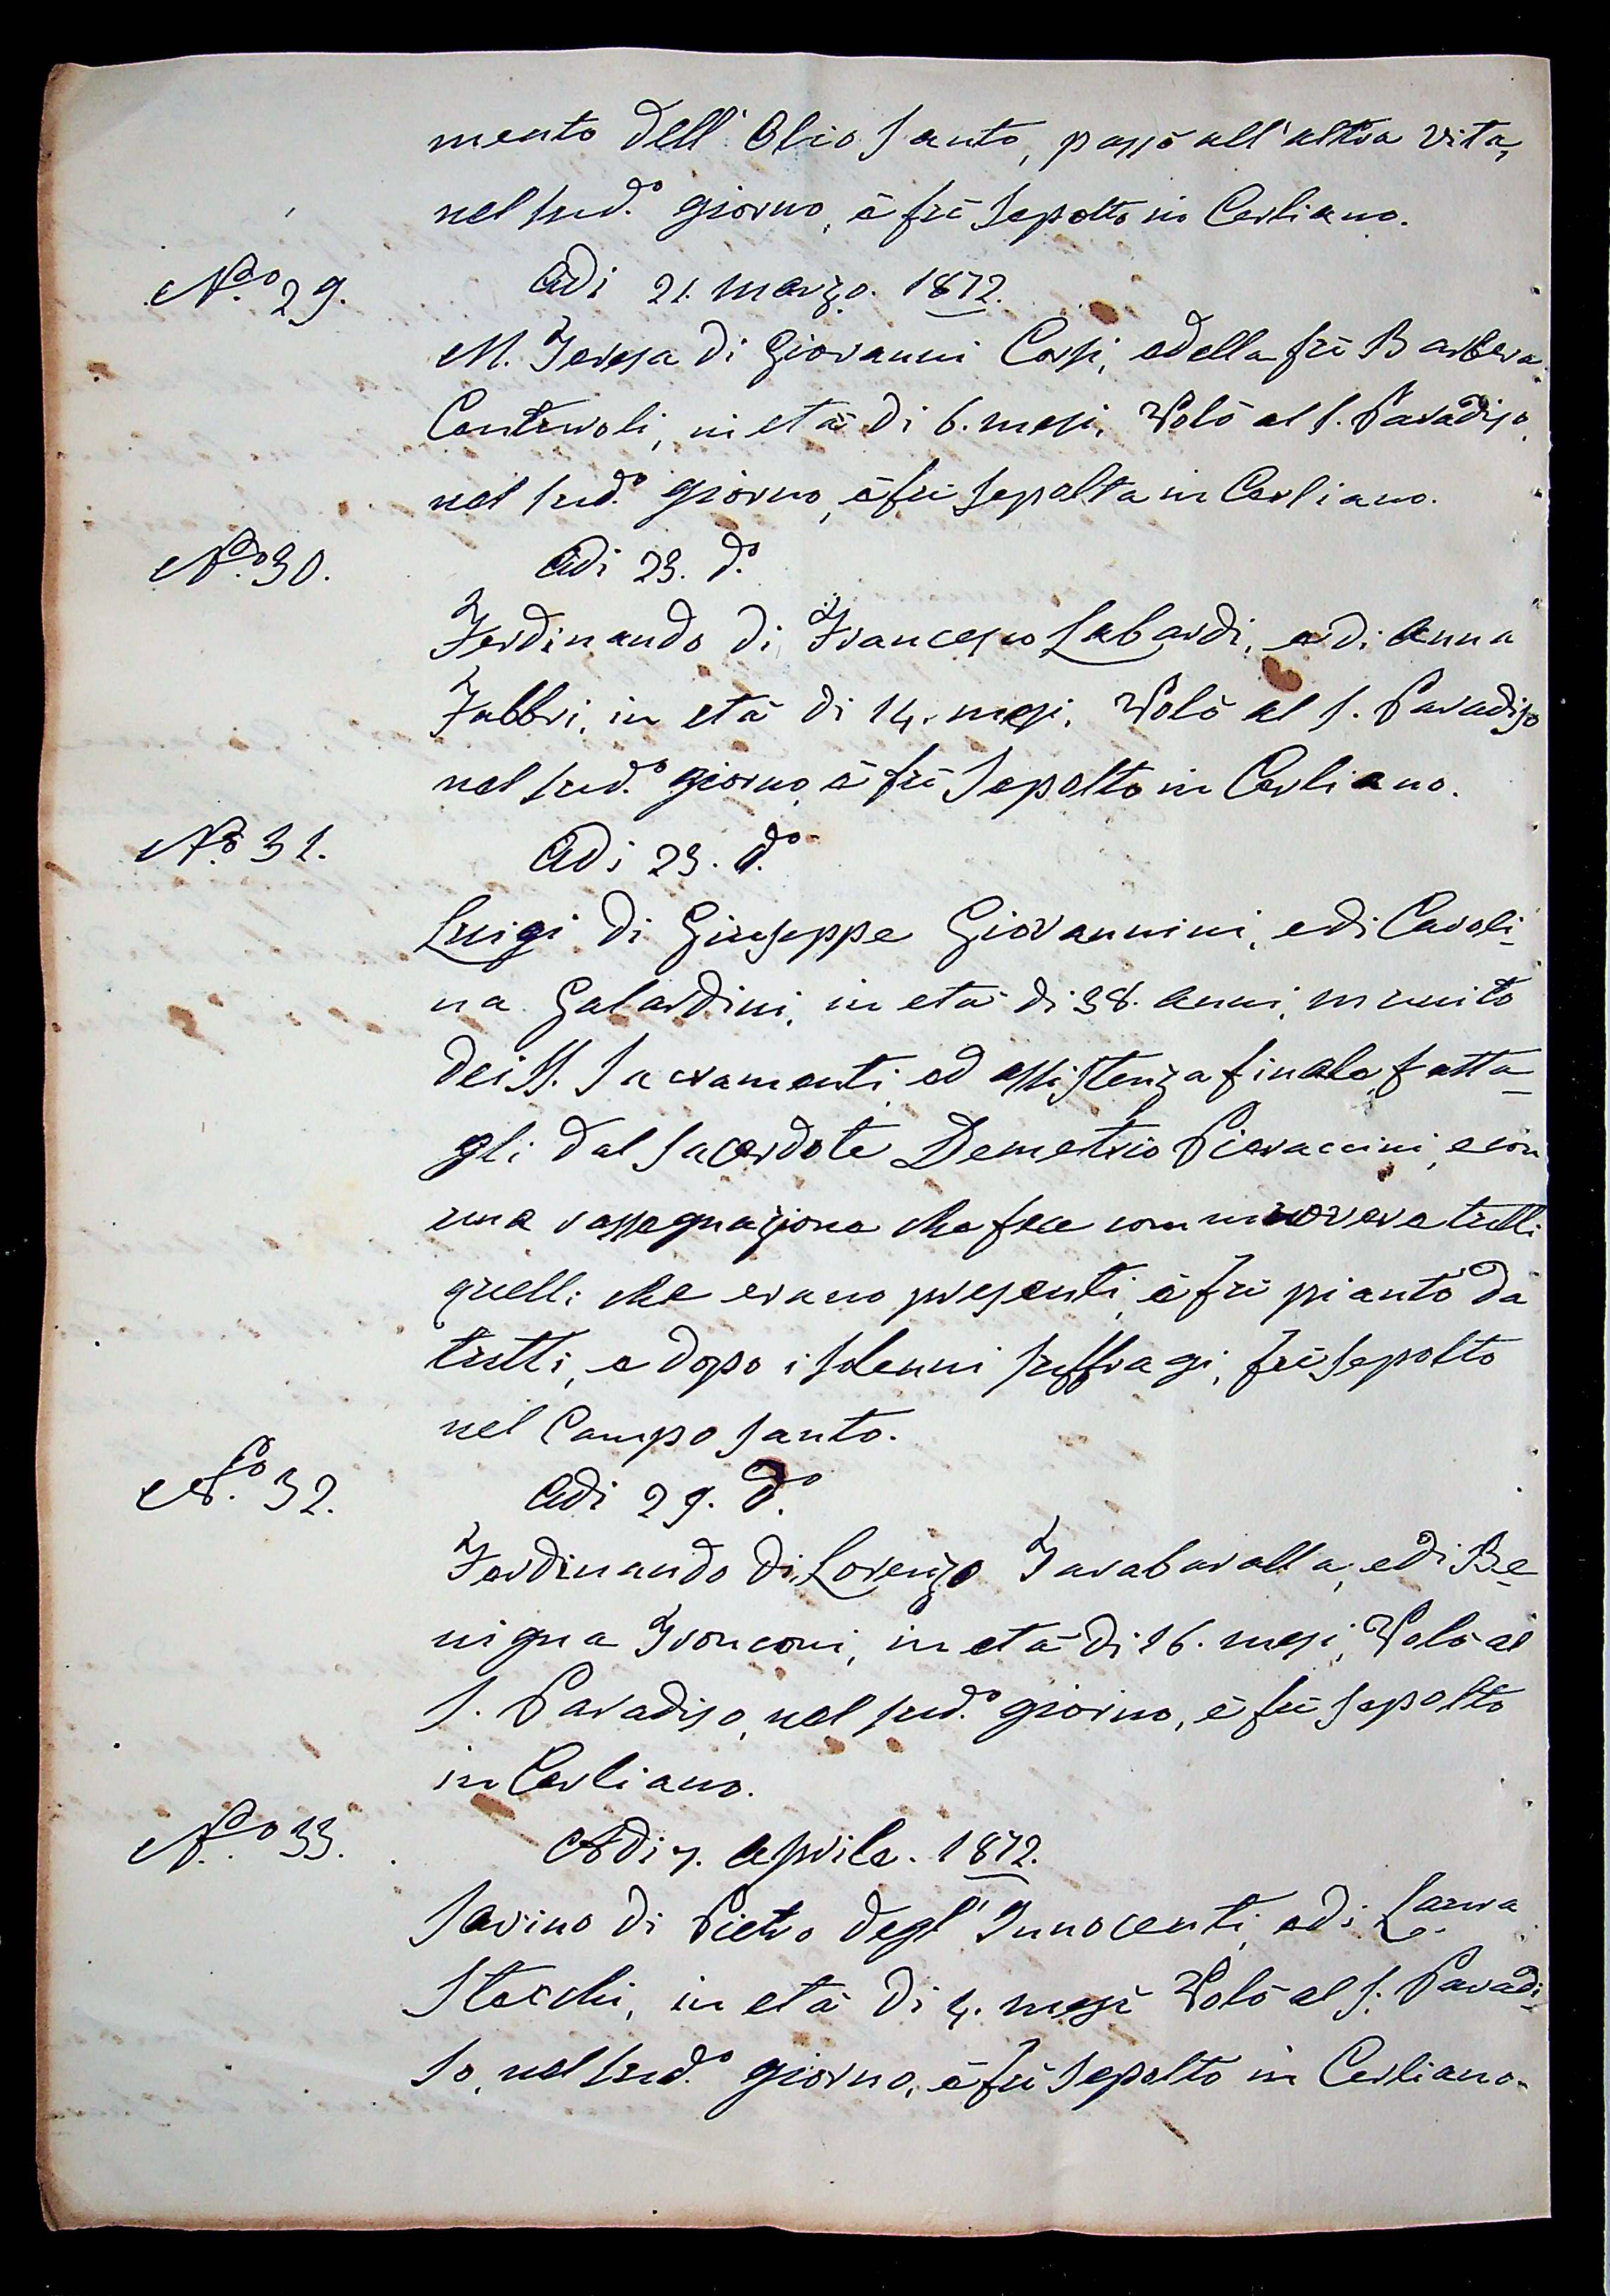 mento dell' Olio Santo, passò all'altra vita,
nel sud.º giorno, e fù sepolto in Cerliano.
N.º 29.
Adi 21. Marzo. 1872.
M. Teresa di Giovanni Corsi, e della fù Barbera
Contrucoli, in età di 6. mesi, Volò al S. Paradiso,
nel sud.º giorno, e fù sepolta in Cerliano.
N.º 30.
Adi 23. d.º
Ferdinando di Francesco Labardi, e di Anna
Fabbri, in età di 14. mesi, Volò al S. Paradiso
nel sud.º giorno, e fù Sepolto in Cerliano.
N.º 31.
Adi 23. d.º
Luigi di Giuseppe Giovannini, e di Caroli-
na Galardini, in età di 38. anni, munito
dei SS. Sacramenti, ed assistenza finale, fatta-
gli dal Sacerdote Demetrio Pieraccini, e con
una rassegnazione che fece commuovere tutti
quelli che erano presenti, e fù pianto da
tutti, e dopo i solenni suffragi, fù sepolto
nel Campo Santo.
N.º 32.
Adi 29. d.º
Ferdinando di Lorenzo Tarabaralla, e di Be-
nigna Tronconi, in età di 16. mesi, Volò al
S. Paradiso, nel sud.º giorno, e fù sepolto
in Cerliano.
N.º 33.
Adi 7. Aprile. 1872.
Savino di Pietro degl' Innocenti, e di Laura
Stecchi, in età di 4. mesi Volò al S. Paradi-
so, nel sud.º giorno, e fù sepolto in Cerliano.